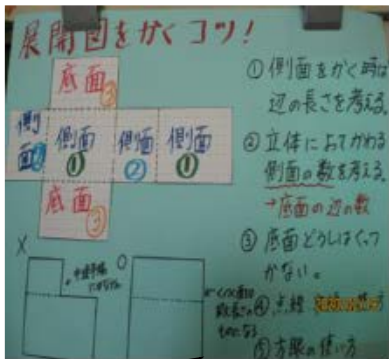 展開図をかくコツ!
底面
③
側
面②
側面
①
側面
②
側面
①
底面
③
①側面をかく時は
辺の長さを考える。
②立体によってかわる
側面の数を考える。
→底面の辺の数
③底面どうしはくっつ
かない。
④点線
⑤方眼の使い方